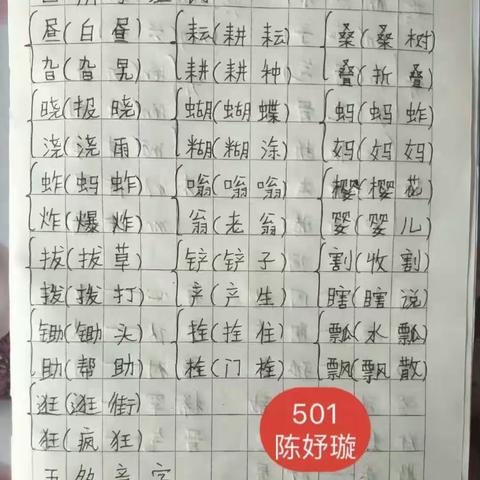 昼(白昼) 耘(耕耘) 桑(桑树)
耕(耕种) 叠(折叠)
晓(报晓) 蝴(蝴蝶) 蚂(蚂蚱)
浇(浇雨) 糊(糊涂) 妈(妈妈)
蚱(蚂蚱) 嗡(嗡嗡) 樱(樱花)
炸(爆炸) 翁(老翁) 婴(婴儿)
拔(拔草) 铲(铲子) 割(收割)
拨(拨打) 产(产生) 瞎(瞎说)
锄(锄头) 拴(拴住) 瓢(水瓢)
助(帮助) 栓(门栓) 飘(飘散)
逛(逛街)
狂(疯狂)
501
陈妤璇